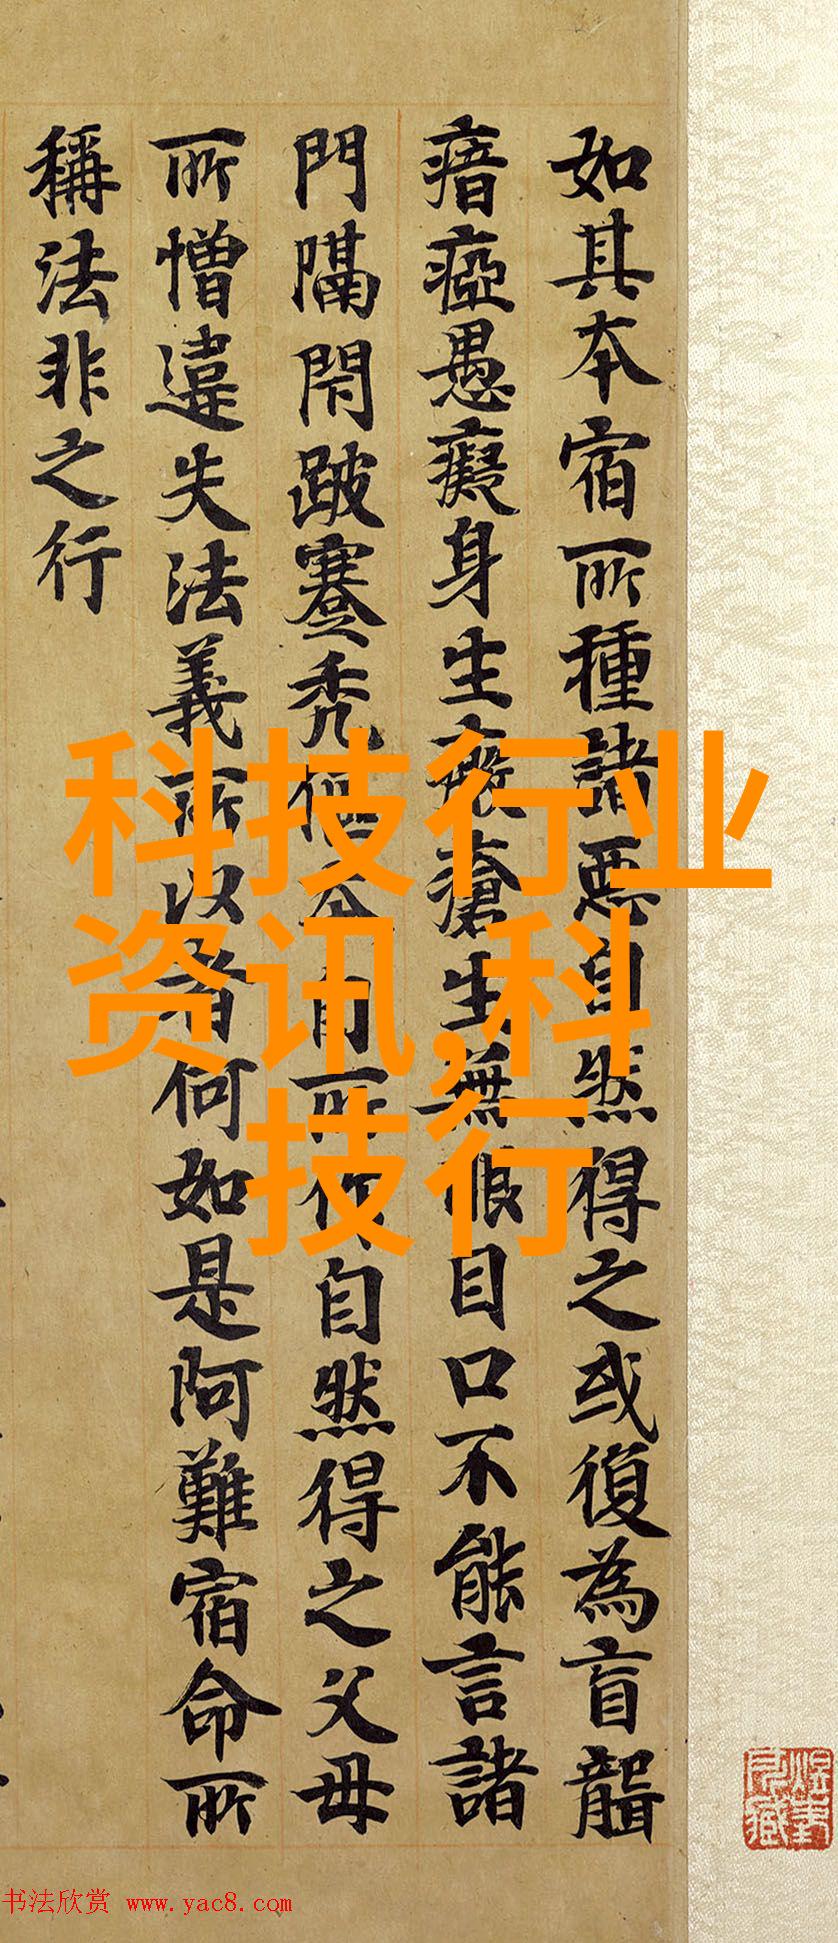 如其本宿所種諸惡自然得之或復為盲聾
瘖瘂愚癡身生瘡生無眼目口不能言諸
門隔閇跛蹇禿本自所作自然得之父母
所憎違失法義所以者何如是阿難宿命所
稱法非之行
科技行业
资讯,科
技行
书法欣赏 www.yac8.com